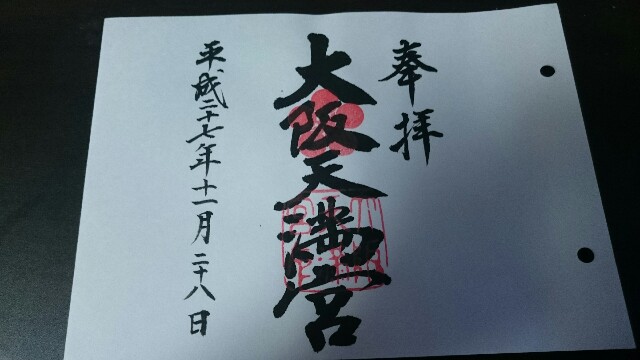 奉拝
大阪天満宮
平成二十七年十一月二十八日